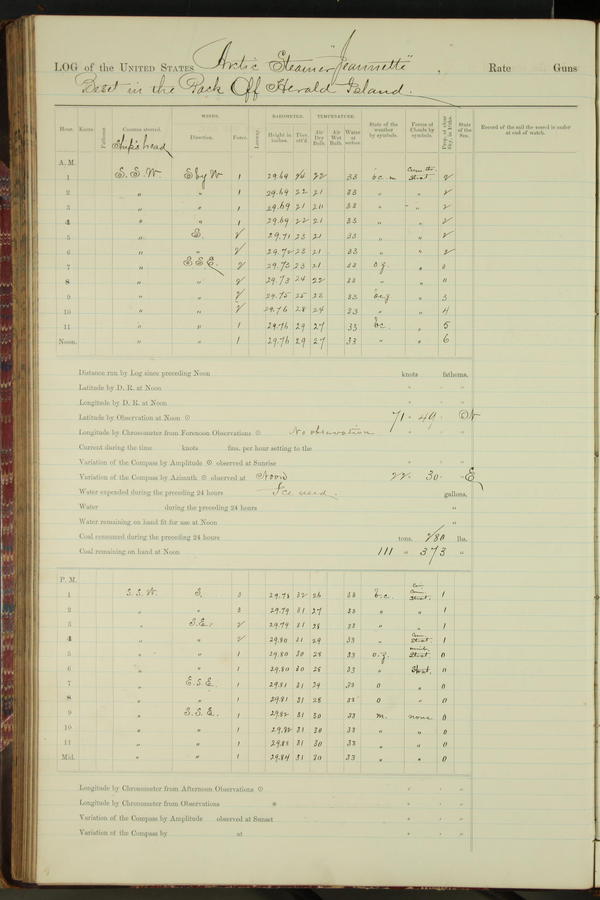 LOG of the UNITED STATES Arctic Steamer "Jeannette", Rate Guns
Beset in the Pack Off Herald Island.
WINDS. BAROMETER. TEMPERATURE.
Hour. Knots. Fathoms. Courses steered. Direction. Force. Leeway. Height in inches. Ther. att'd. Air Dry Bulb. Air Wet Bulb. Water at surface. State of the weather by symbols. Forms of Clouds by symbols. Prop. of clear Sky, in 10ths. State of the Sea. Record of the sail the vessel is under at end of watch.
Ship's head
A. M.
1 S. S. W. S by W 1 29.69 22 33 b.c.m. Strat. 2
2 " " 1 29.69 22 21 33 " " 2
3 " " 1 29.69 21 33 " " 2
4 " " 1 29.69 22 21 33 " " 2
5 " S. 2 29.71 23 21 33 " " 2
6 " " 2 29.72 23 21 33 " " 2
7 " S.S.E. 2 29.73 23 21 33 o.g. " 0
8 " " 2 29.73 24 22 33 " " "
9 " " 2 29.75 25 33 " 3
10 " " 2 29.76 28 24 33 " " 4
11 " " 1 29.76 29 27 33 b.c. " 5
Noon. " " 1 29.76 29 27 33 " " 6
Distance run by Log since preceding Noon knots fathoms.
Latitude by D. R. at Noon
Longitude by D. R. at Noon
Latitude by Observation at Noon ☉ 71 ° 49 ' N
Longitude by Chronometer from Forenoon Observations ☉ No observation
Current during the time knots fms. per hour setting to the
Variation of the Compass by Amplitude ☉ observed at Sunrise
Variation of the Compass by Azimuth ☉ observed at Noon 22 ° 30 ' E
Water expended during the preceding 24 hours Ice used. gallons.
Water during the preceding 24 hours "
Water remaining on hand fit for use at Noon "
Coal consumed during the preceding 24 hours tons. 280 lbs.
Coal remaining on hand at Noon 111 " 373 "
P. M.
1 S. S. W. S. 3 29.78 32 26 33 b.c. Strat. 1
2 " " 3 29.79 31 27 33 " " 1
3 " S.E. 2 29.79 31 28 33 " " 1
4 " " 2 29.80 31 29 33 " Strat. 1
5 " " 1 29.80 30 28 33 o.g. Strat. 0
6 " " 1 29.80 30 28 33 " Strat. 0
7 " E.S.E. 1 29.81 31 33 0 " 0
8 " " 1 29.81 31 28 33 0 " 0
9 " S.S.E. 1 29.82 31 30 33 m. none 0
10 " " 1 29.82 31 30 33 " " 0
11 " " 1 29.83 31 30 33 " " 0
Mid. " " 1 29.84 31 30 33 " " 0
Longitude by Chronometer from Afternoon Observations ☉
Longitude by Chronometer from Observations *
Variation of the Compass by Amplitude observed at Sunset
Variation of the Compass by at